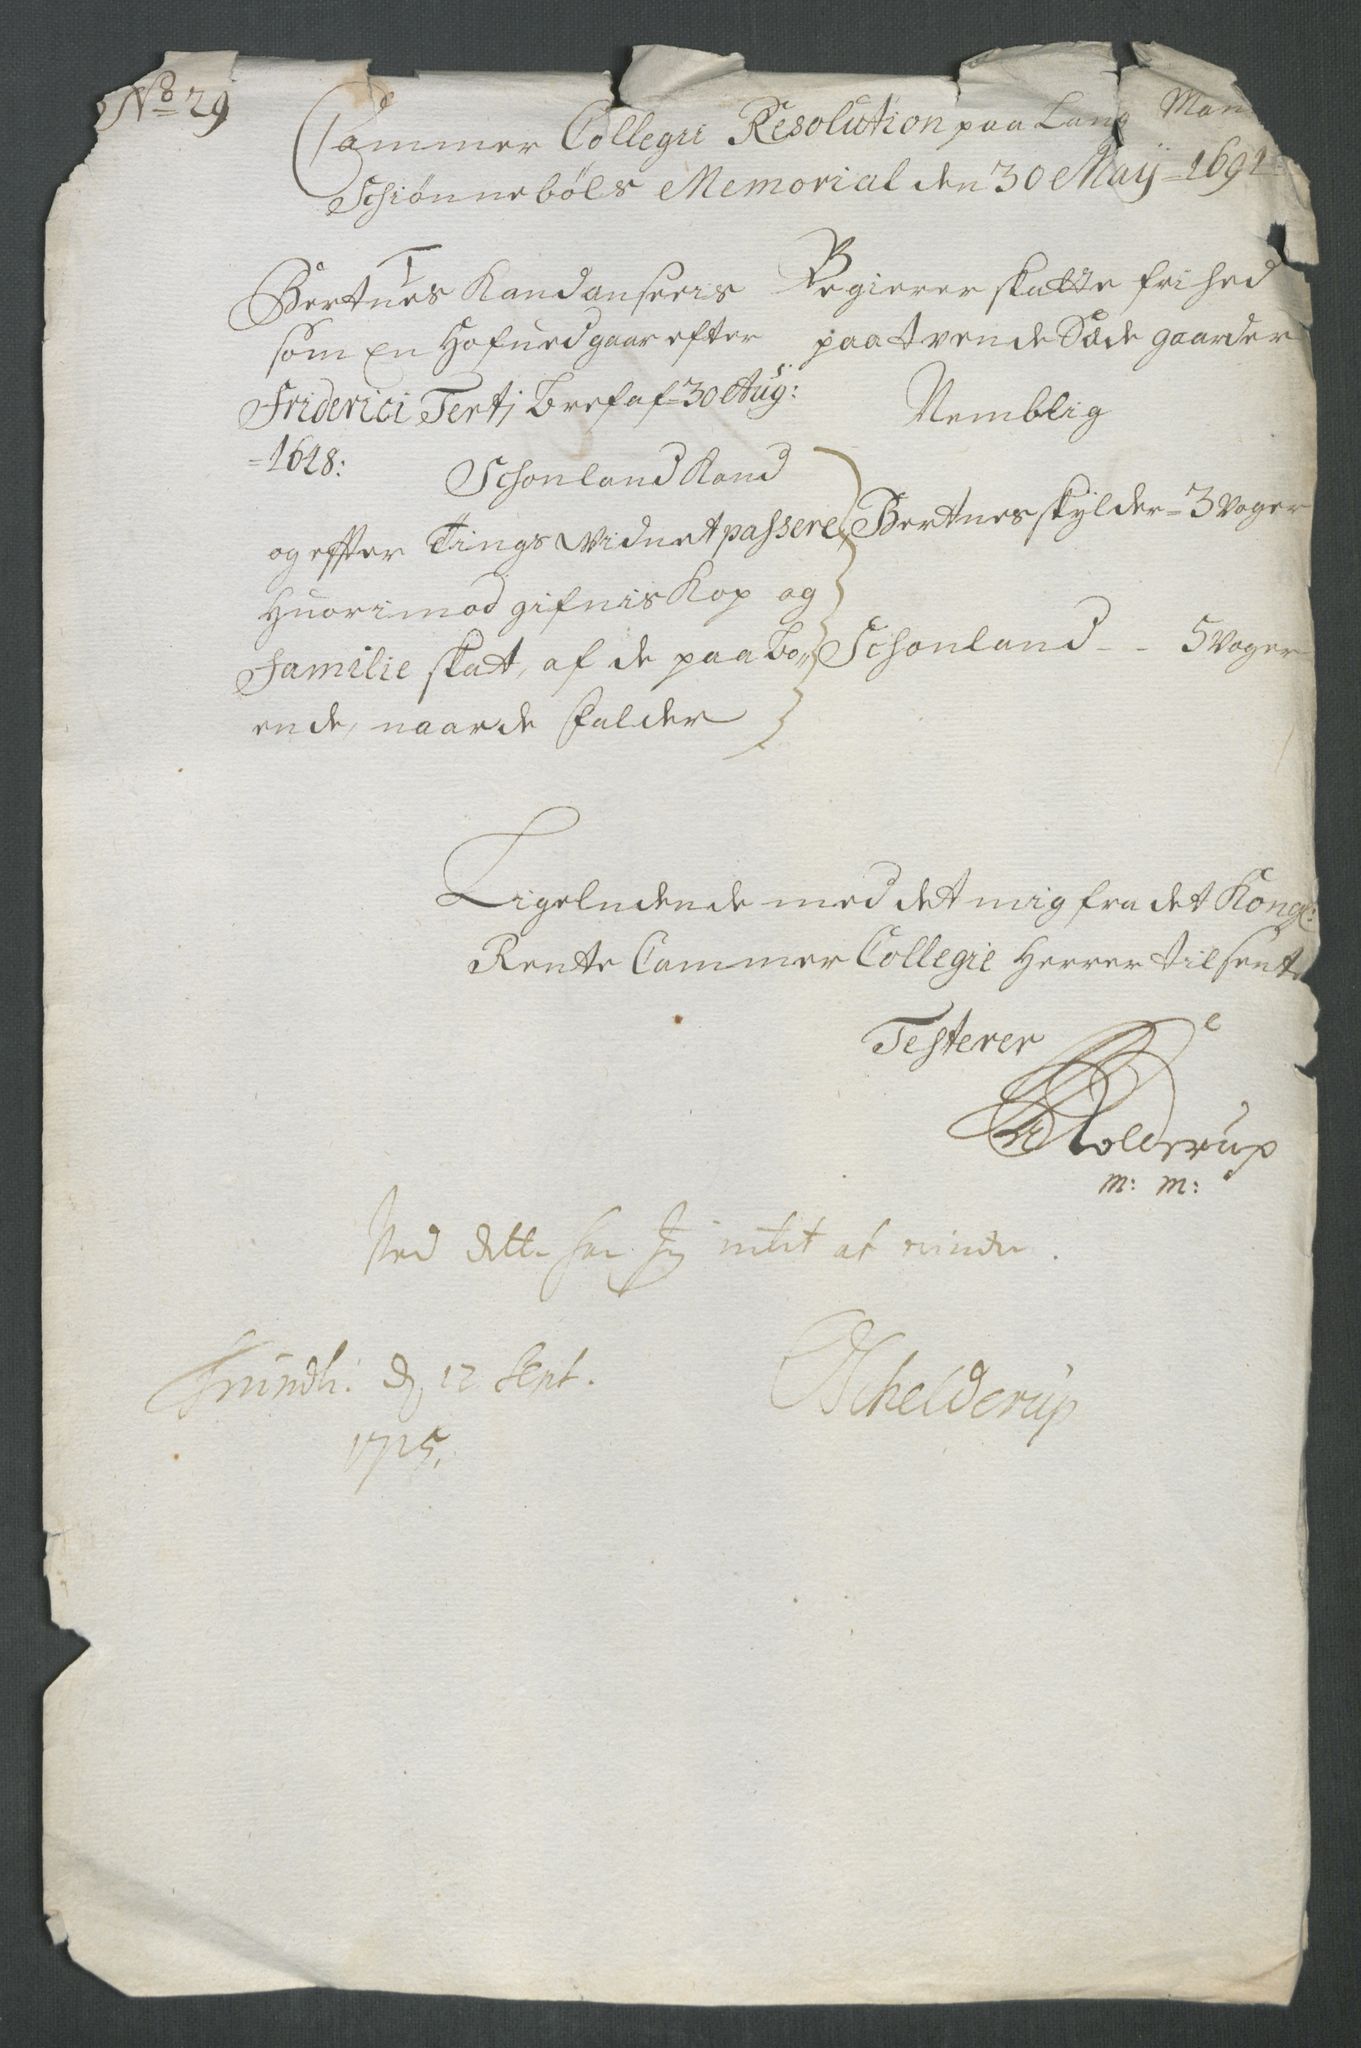 No 29
Cammer Collegii Resolution paa Laug Man
Schiønnebøls Memorial den 30 Maÿ = 1691
Bertnes Kand ansees
som En Hofued gaar efter
Friderici Tertj Bref af = 30 Aug:
= 1648:
Schonland Kand
og effter Tings Vidnet passere
Huorimod gifuis Kop og
Familie skat, af de paa bo„
ende, naar de falder
Begierer skatte frihed
paa tvende Sæde gaarder
Nemblig
Bertnes skÿlder = 3 Voger
Schonland - - 5 Voger
Ligeludende med det mig fra det Kongl:
Rente Cammer Collegie Herrer tilsent
Testerer
Rolderup
m: m:
Ved dette har Jeg intet at minde.
Trundh: d, 12 Sept.
1715.
Schelderup